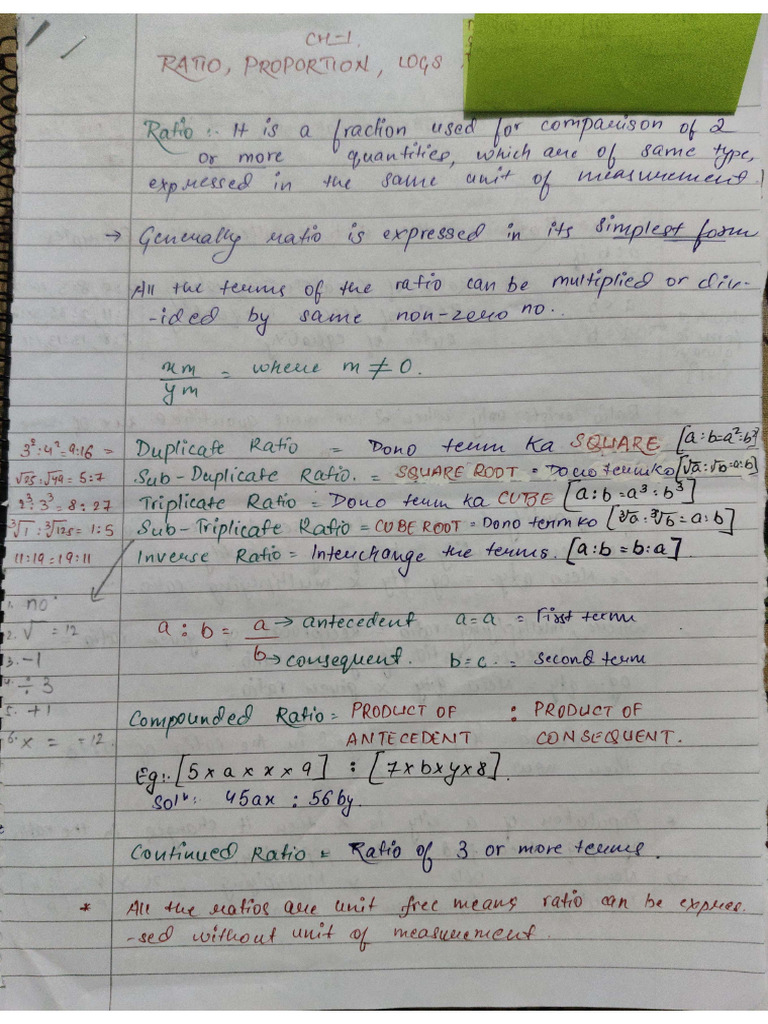 CH-1.
RATIO, PROPORTION, LOGS
Ratio :- It is a fraction used for comparison of 2
or more quantities, which are of same type,
expressed in the same unit of measurement
→ Generally ratio is expressed in its simplest form
All the terms of the ratio can be multiplied or div-
-ided by same non-zero no..
xm/ym = where m ≠ 0.
3²:4² = 9:16 = Duplicate Ratio = Dono term ka SQUARE [a:b=a²:b²]
√25:√49 = 5:7 Sub-Duplicate Ratio. = SQUARE ROOT = Dono term ko [√a:√b=a:b]
2³:3³ = 8:27 Triplicate Ratio = Dono term ka CUBE [a:b=a³:b³]
∛1:∛125 = 1:5 Sub-Triplicate Ratio = CUBE ROOT = Dono term ko [∛a:∛b=a:b]
11:19 = 19:11 Inverse Ratio = Interchange the terms. [a:b=b:a].
1. no.
2. √ = 12
3. -1
4. ÷ 3
5. +1
6. x = = 12.
a : b = a/b
a → antecedent a=a = First term
b → consequent. b=c. = Second term
Compounded Ratio = PRODUCT OF : PRODUCT OF
ANTECEDENT CONSEQUENT.
Eg:- [5×a×x×9] : [7×b×y×8].
Solⁿ: 45ax : 56by.
Continued Ratio = Ratio of 3 or more terms.
* All the ratios are unit free means ratio can be expres.
-sed without unit of measurement.